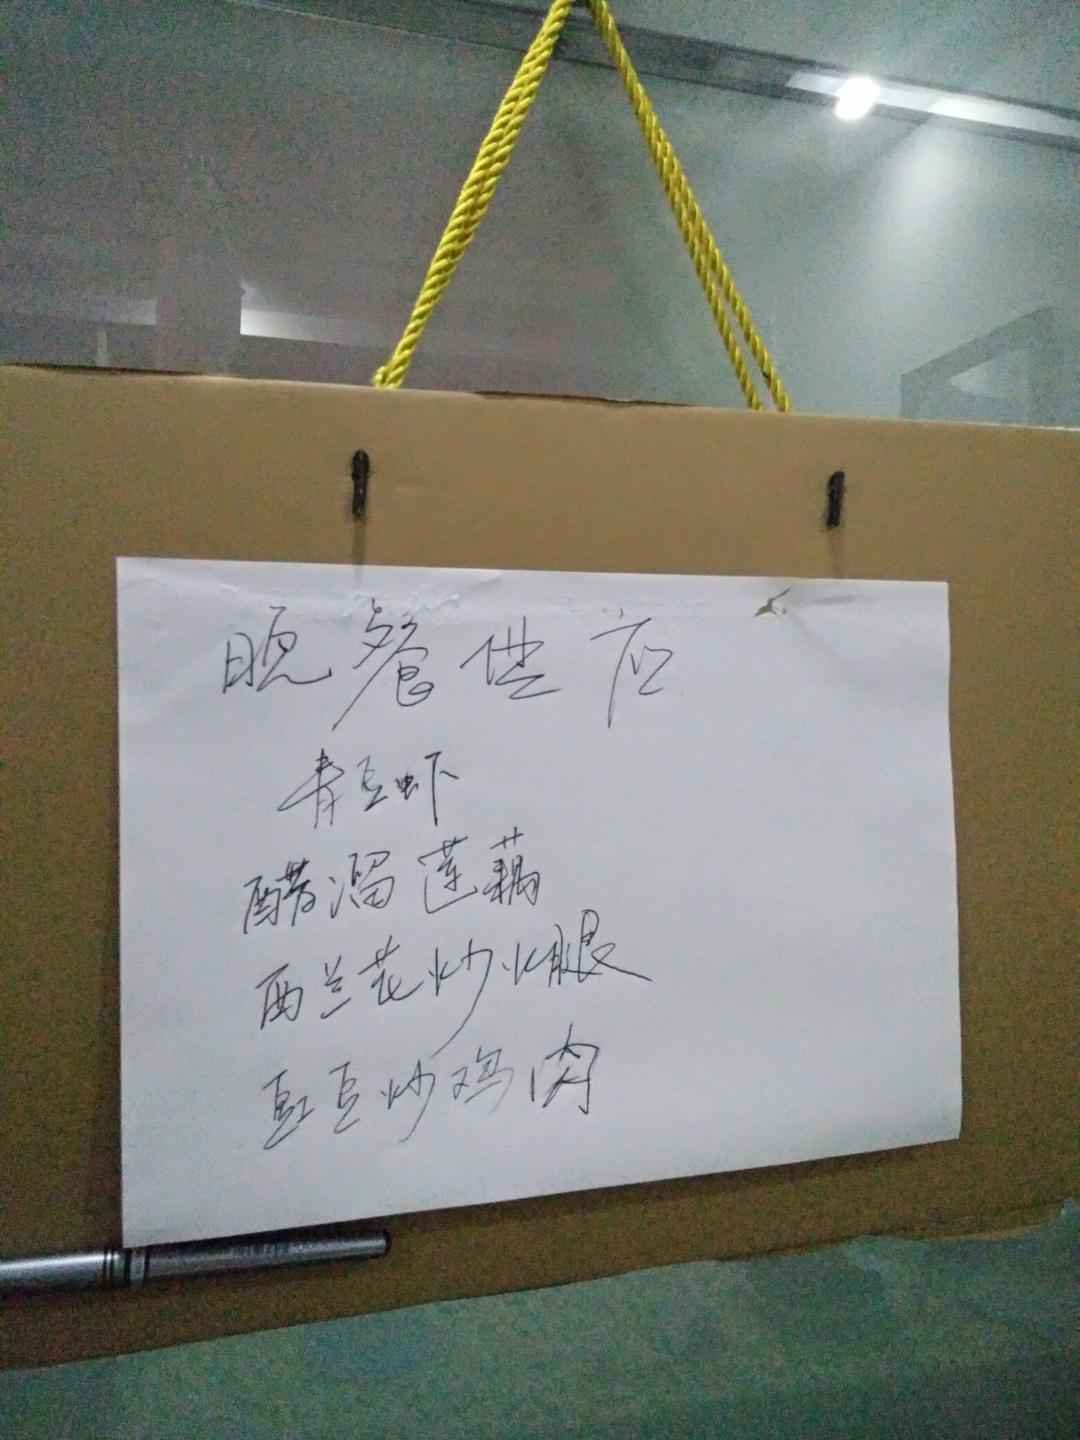 晚餐供应
青豆虾
醋溜莲藕
西兰花炒火腿
豇豆炒鸡肉